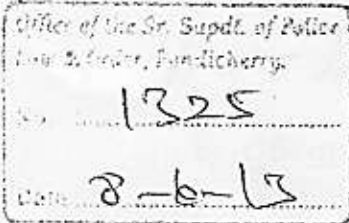 Office of the Sr. Supdt. of Police
Law & Order, Pondicherry.
No. 1325
Date 8-6-13